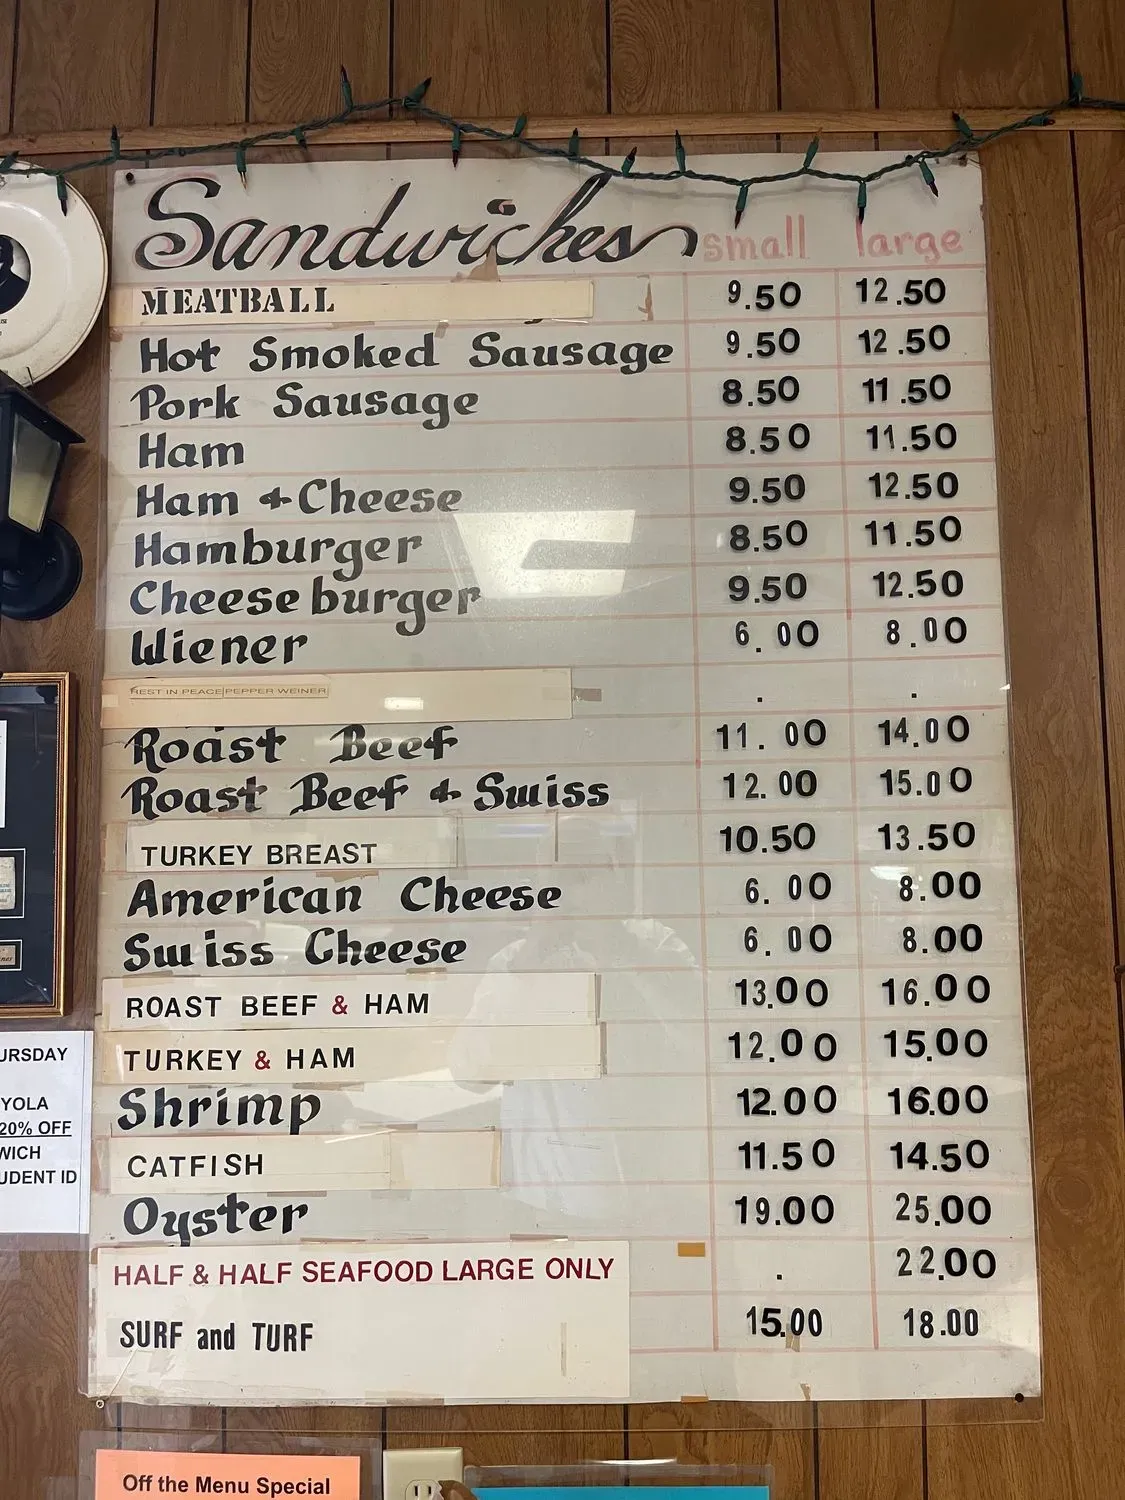 Sandwiches small large
MEATBALL 9.50 12.50
Hot Smoked Sausage 9.50 12.50
Pork Sausage 8.50 11.50
Ham 8.50 11.50
Ham & Cheese 9.50 12.50
Hamburger 8.50 11.50
Cheeseburger 9.50 12.50
Wiener 6.00 8.00
REST IN PEACE PEPPER WEINER . .
Roast Beef 11.00 14.00
Roast Beef & Swiss 12.00 15.00
TURKEY BREAST 10.50 13.50
American Cheese 6.00 8.00
Swiss Cheese 6.00 8.00
ROAST BEEF & HAM 13.00 16.00
TURKEY & HAM 12.00 15.00
Shrimp 12.00 16.00
CATFISH 11.50 14.50
Oyster 19.00 25.00
HALF & HALF SEAFOOD LARGE ONLY . 22.00
SURF and TURF 15.00 18.00
URSDAY
YOLA
20% OFF
WICH
UDENT ID
Off the Menu Special